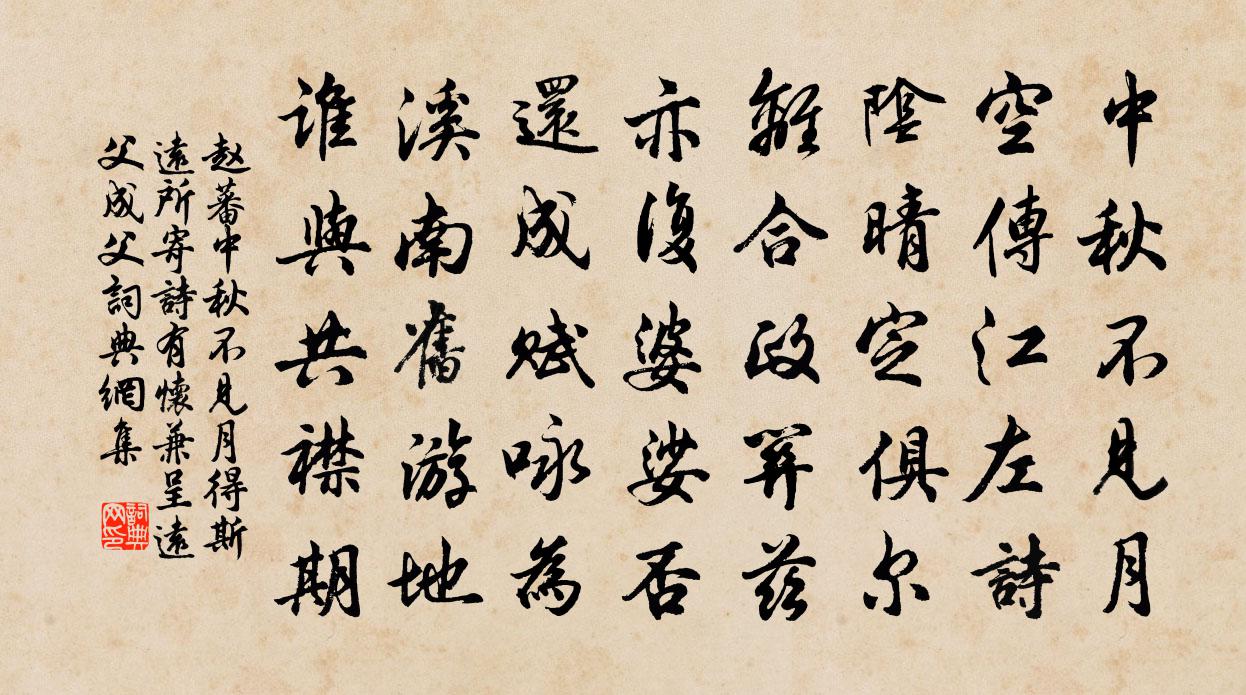 中秋不見月
空傳江左詩
陰晴定俱尔
離合政筭茲
亦復婆娑否
還成賦咏為
溪南舊游地
誰與共襟期
赵蕃中秋不見月得斯
遠所寄詩有懷兼呈遠
父成父詞典網集
詞典
网印